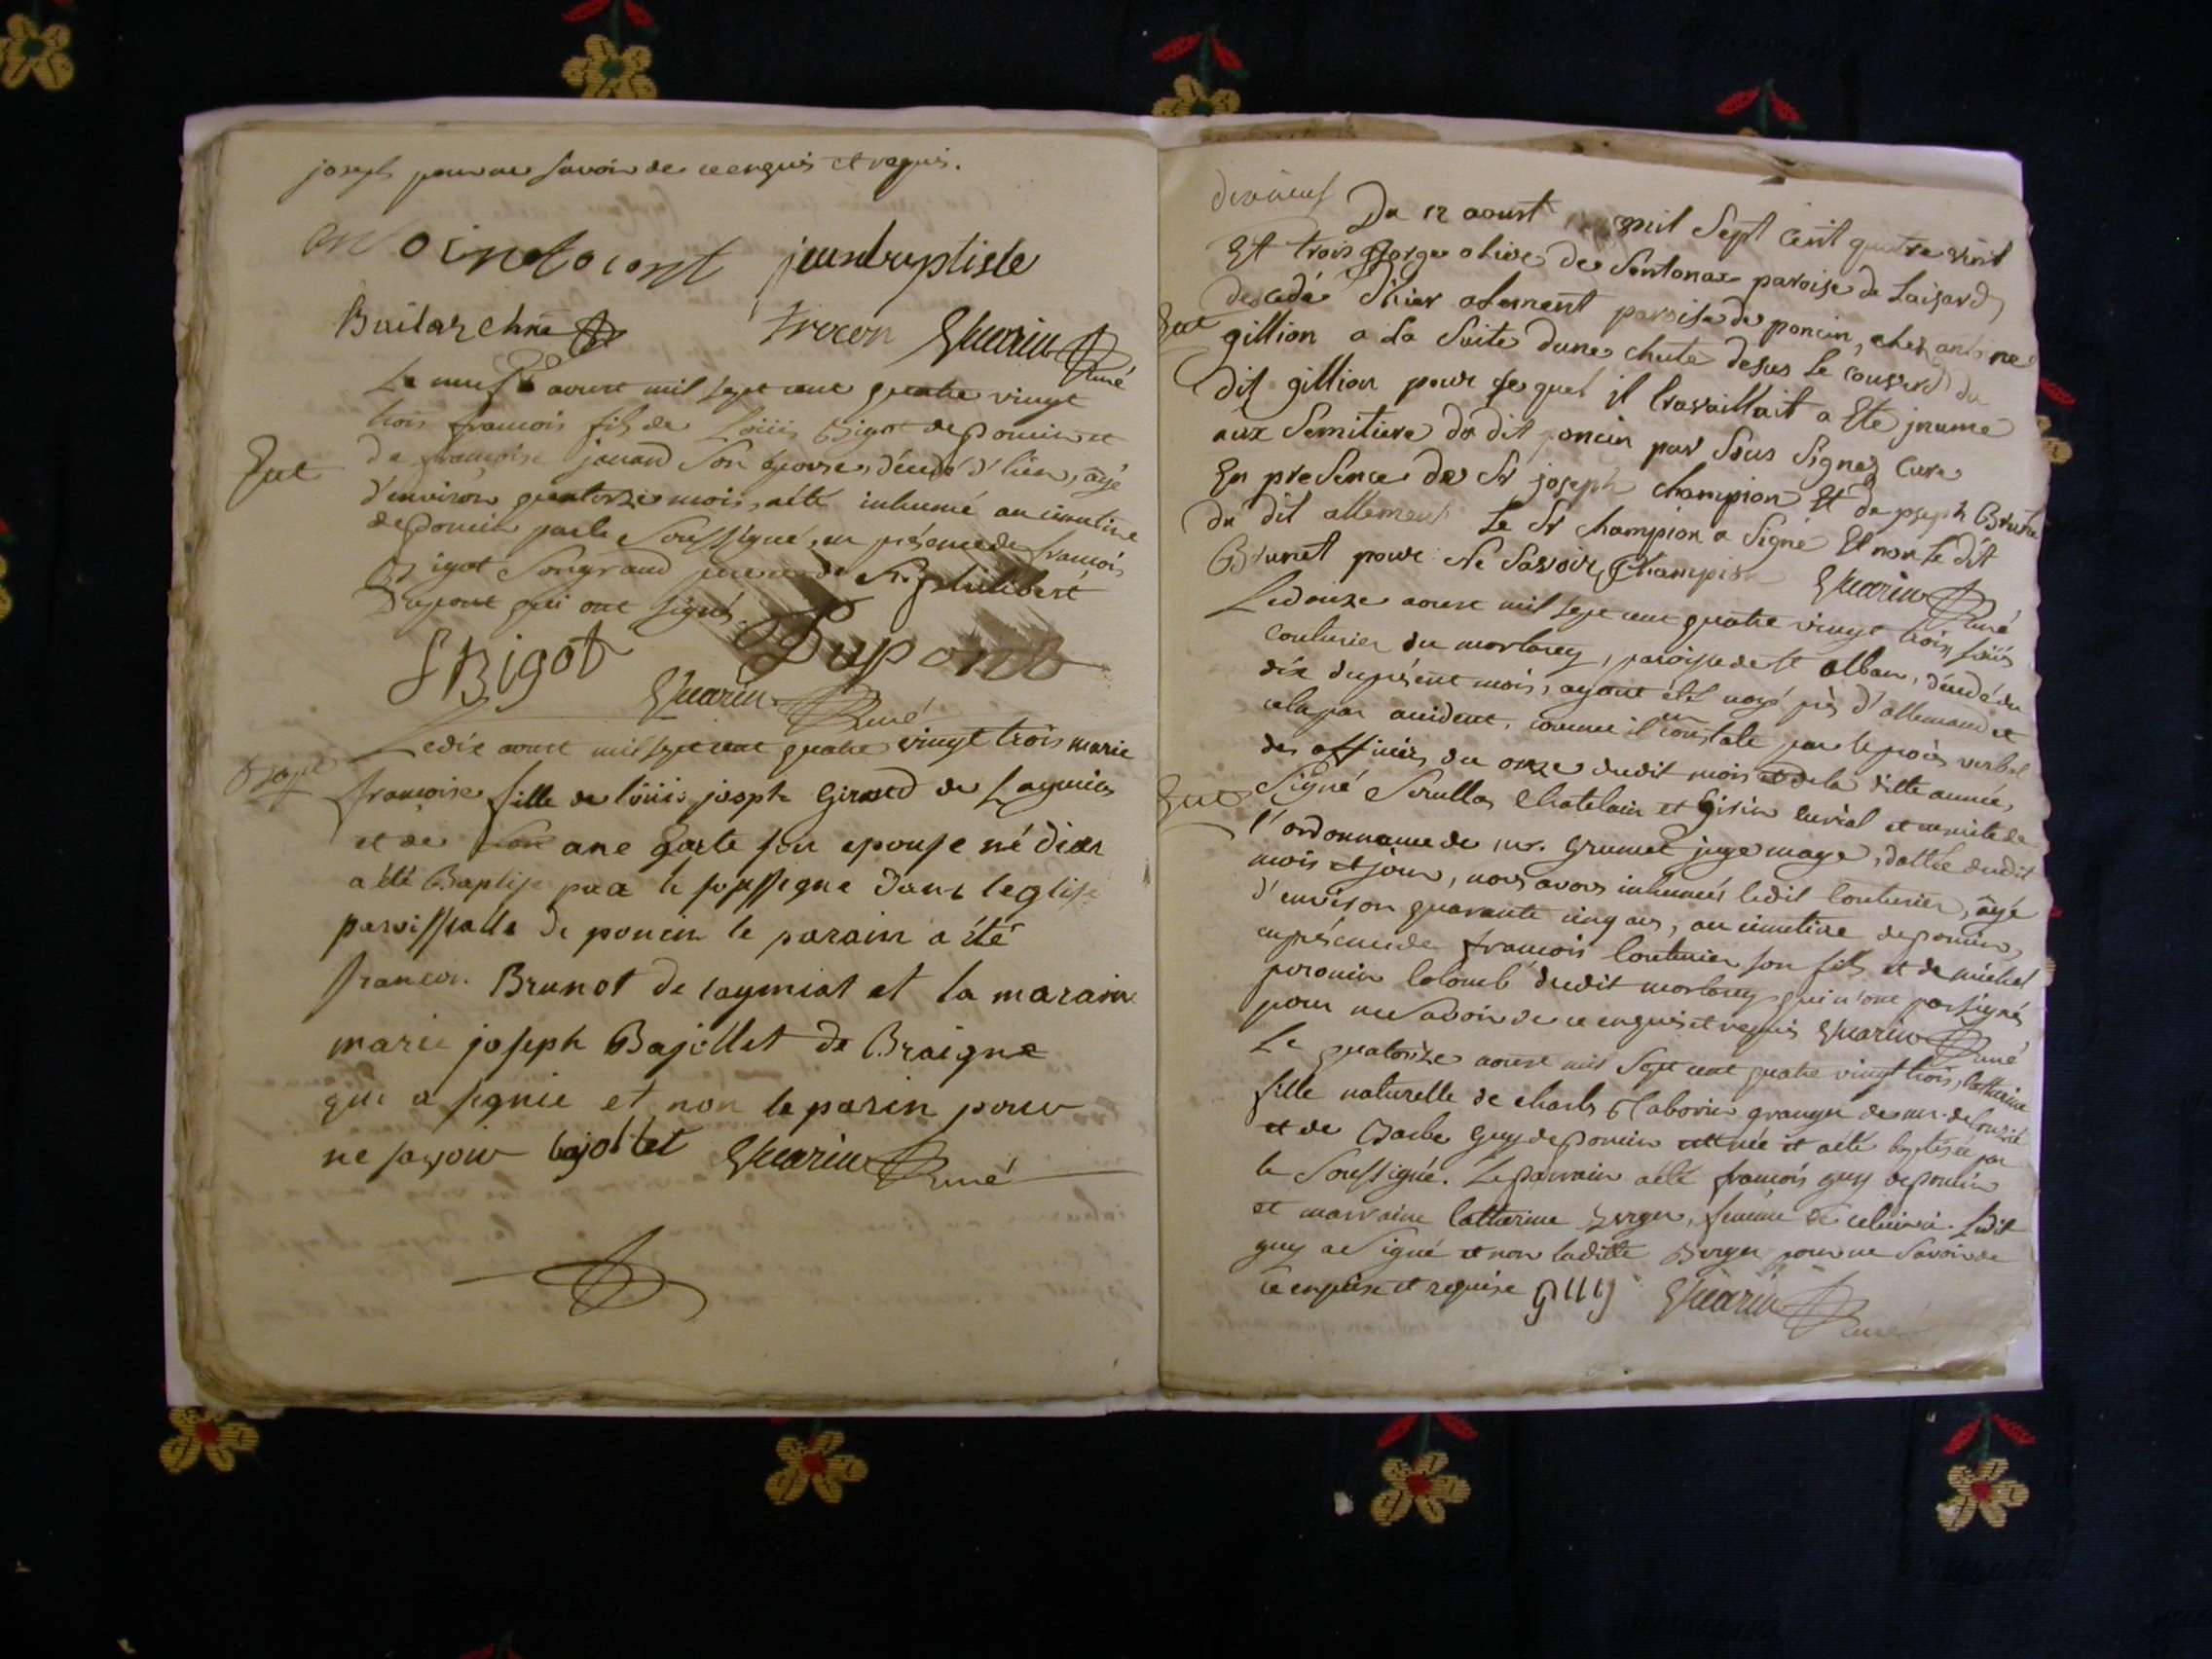 joseph pour ne savoir de ce enquis et requis.
jeanbaptiste
trocon Guarin Curé
Le neuf aoust mil sept cent quatre vingt
trois francois fils de Loüis Bigot de poncin et
de francoise janand son epouse, décédé d'hier, âgé
Ent
d'environ quatorze mois, a été inhumé au cimetiere
de poncin par le soussigné, en présence de francois
Bigot son grand pere et de Sr philibert
Dupont qui ont signés
F Bigot Dupont
Guarin Curé
Bapt
Le dix aoust mil sept cent quatre vingt trois marie
francoise fille de loüis joseph Giraud de
et de ane son epouse né dier
a été Baptise par le soussigne dans leglise
paroissialle de poncin le parain a été
francois Brunot de et la maraine
marie joseph Bajollet de Braigne
qui a signie et non le parin pour
ne savoir bajollet Guarin Curé
dixneuf
Du 12 aoust mil Sept Cent quatre vint
Et trois George olive de Sontonax paroise de Laisard
decedé d'hier alement paroise de poncin, chez antoine
Ent
gillion a La Suite dune chute desus Le couverd du
dit gillion pour lequel jl travaillait a Ete jnume
aux Semitiere du dit poncin par Sous Signez Cure
En presence de Sr joseph champion Et de joseph Brunet
du dit allement Le Sr champion a Signé Et non Le dit
Brunet pour Ne Savoir, Champion Guarin Curé
Le douze aoust mil sept cent quatre vingt trois, Loüis
Couturier du morlarey, paroisse de St alban, décédé du
dix du présent mois, ayant été noyé près d'allemand et
cela par accident, comme il en constate par le procès verbal
des officiers du onze dudit mois et de la ditte année,
Ent
signé Chatelain et curial et ensuite de
l'ordonnance de mr. Grumet juge mage, dattée dudit
mois et jour, nous avons inhumés ledit Couturier, âgé
d'environ quarante cinq ans, au cimetiere de poncin,
en présence de francois Couturier son fils et de michel
Colomb dudit morlarey qui n'ont pas signés
pour ne savoir de ce enquis et requis Guarin Curé
Le quatorze aoust mil sept cent quatre vingt trois, Catherine
fille naturelle de charles granger de mr.
et de Barbe Guy de poncin est née et a été baptisée par
le Soussigné. Le parrain a été francois guy de poncin
et marraine Catherine Berger, femme de celui-ci. Ledit
guy a signé et non laditte Berger pour ne savoir de
ce enquise et requise guy Guarin Curé